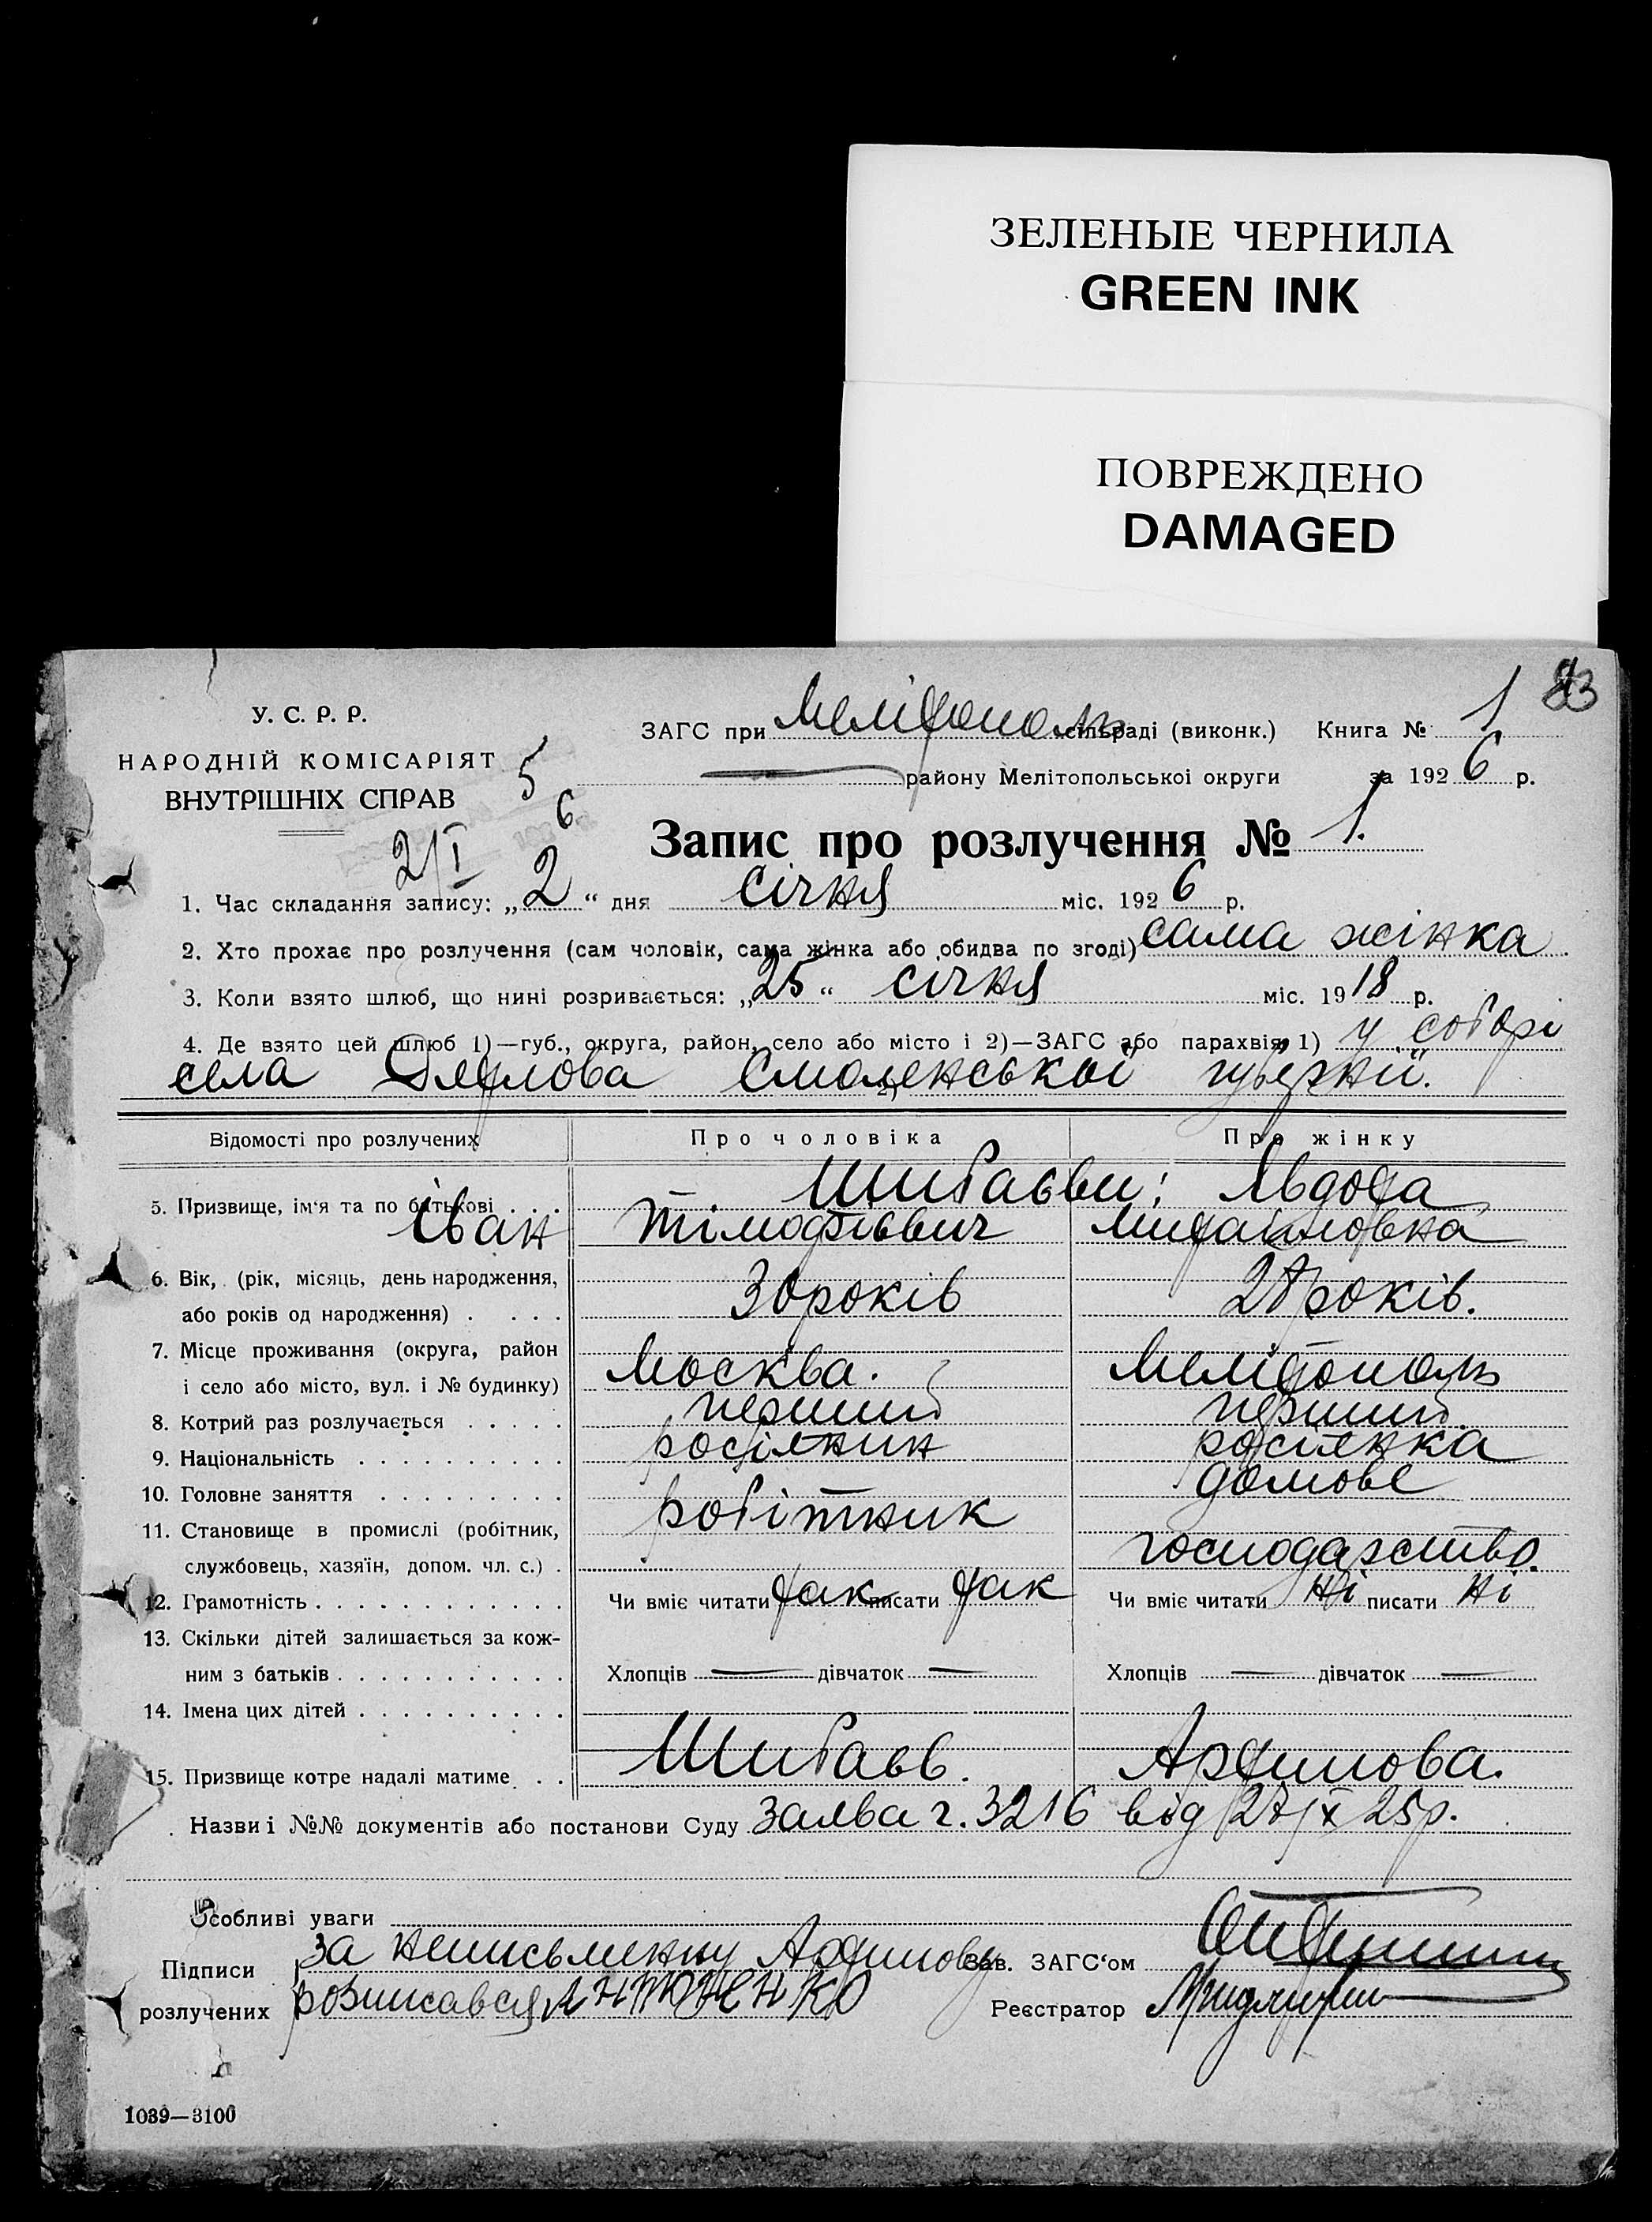 ЗЕЛЕНЫЕ ЧЕРНИЛА
GREEN INK
ПОВРЕЖДЕНО
DAMAGED
У. С. Р. Р.
НАРОДНІЙ КОМІСАРІЯТ
ВНУТРІШНІХ СПРАВ
5
6
2/I
ЗАГС при Мелітополь сільраді (виконк.) Книга № 1
району Мелітопольської округи за 1926 р.
Запис про розлучення № 1.
1. Час складання запису: „2“ дня січня міс. 1926 р.
2. Хто прохає про розлучення (сам чоловік, сама жінка або обидва по згоді) сама жінка
3. Коли взято шлюб, що нині розривається: „25“ січня міс. 1918 р.
4. Де взято цей шлюб 1)—губ., округа, район, село або місто і 2)—ЗАГС або парахвія 1) у соборі
села Дятлова Смоленської 2) губерні.
Відомості про розлучених Про чоловіка Про жінку
5. Призвище, ім'я та по батькові . . . Шибаєви: Явдота
Іван Тімофієвич Михайловна
6. Вік, (рік, місяць, день народження,
або років од народження) . . . . 30 років 28 років.
7. Місце проживання (округа, район
і село або місто, вул. і № будинку) Москва. Мелітополь
8. Котрий раз розлучається . . . . . перший перший
9. Національність . . . . . . . . . . росіянин росіянка
10. Головне заняття . . . . . . . . . домове
11. Становище в промислі (робітник, робітник
службовець, хазяїн, допом. чл. с.) . господарство.
12. Грамотність . . . . . . . . . . . . Чи вміє читати так писати так Чи вміє читати ні писати ні
13. Скільки дітей залишається за кож-
ним з батьків . . . . . . . . . . . Хлопців — дівчаток — Хлопців — дівчаток —
14. Імена цих дітей . . . . . . . . . .
15. Призвище котре надалі матиме . . Шибаєв. Артишова.
Назви і №№ документів або постанови Суду Заява ч. 3216 від 27/X 25 р.
Особливі уваги
Підписи за неписьменну Артишову Зав. ЗАГС'ом
розлучених розписався Антоненко Реєстратор
1039—3100